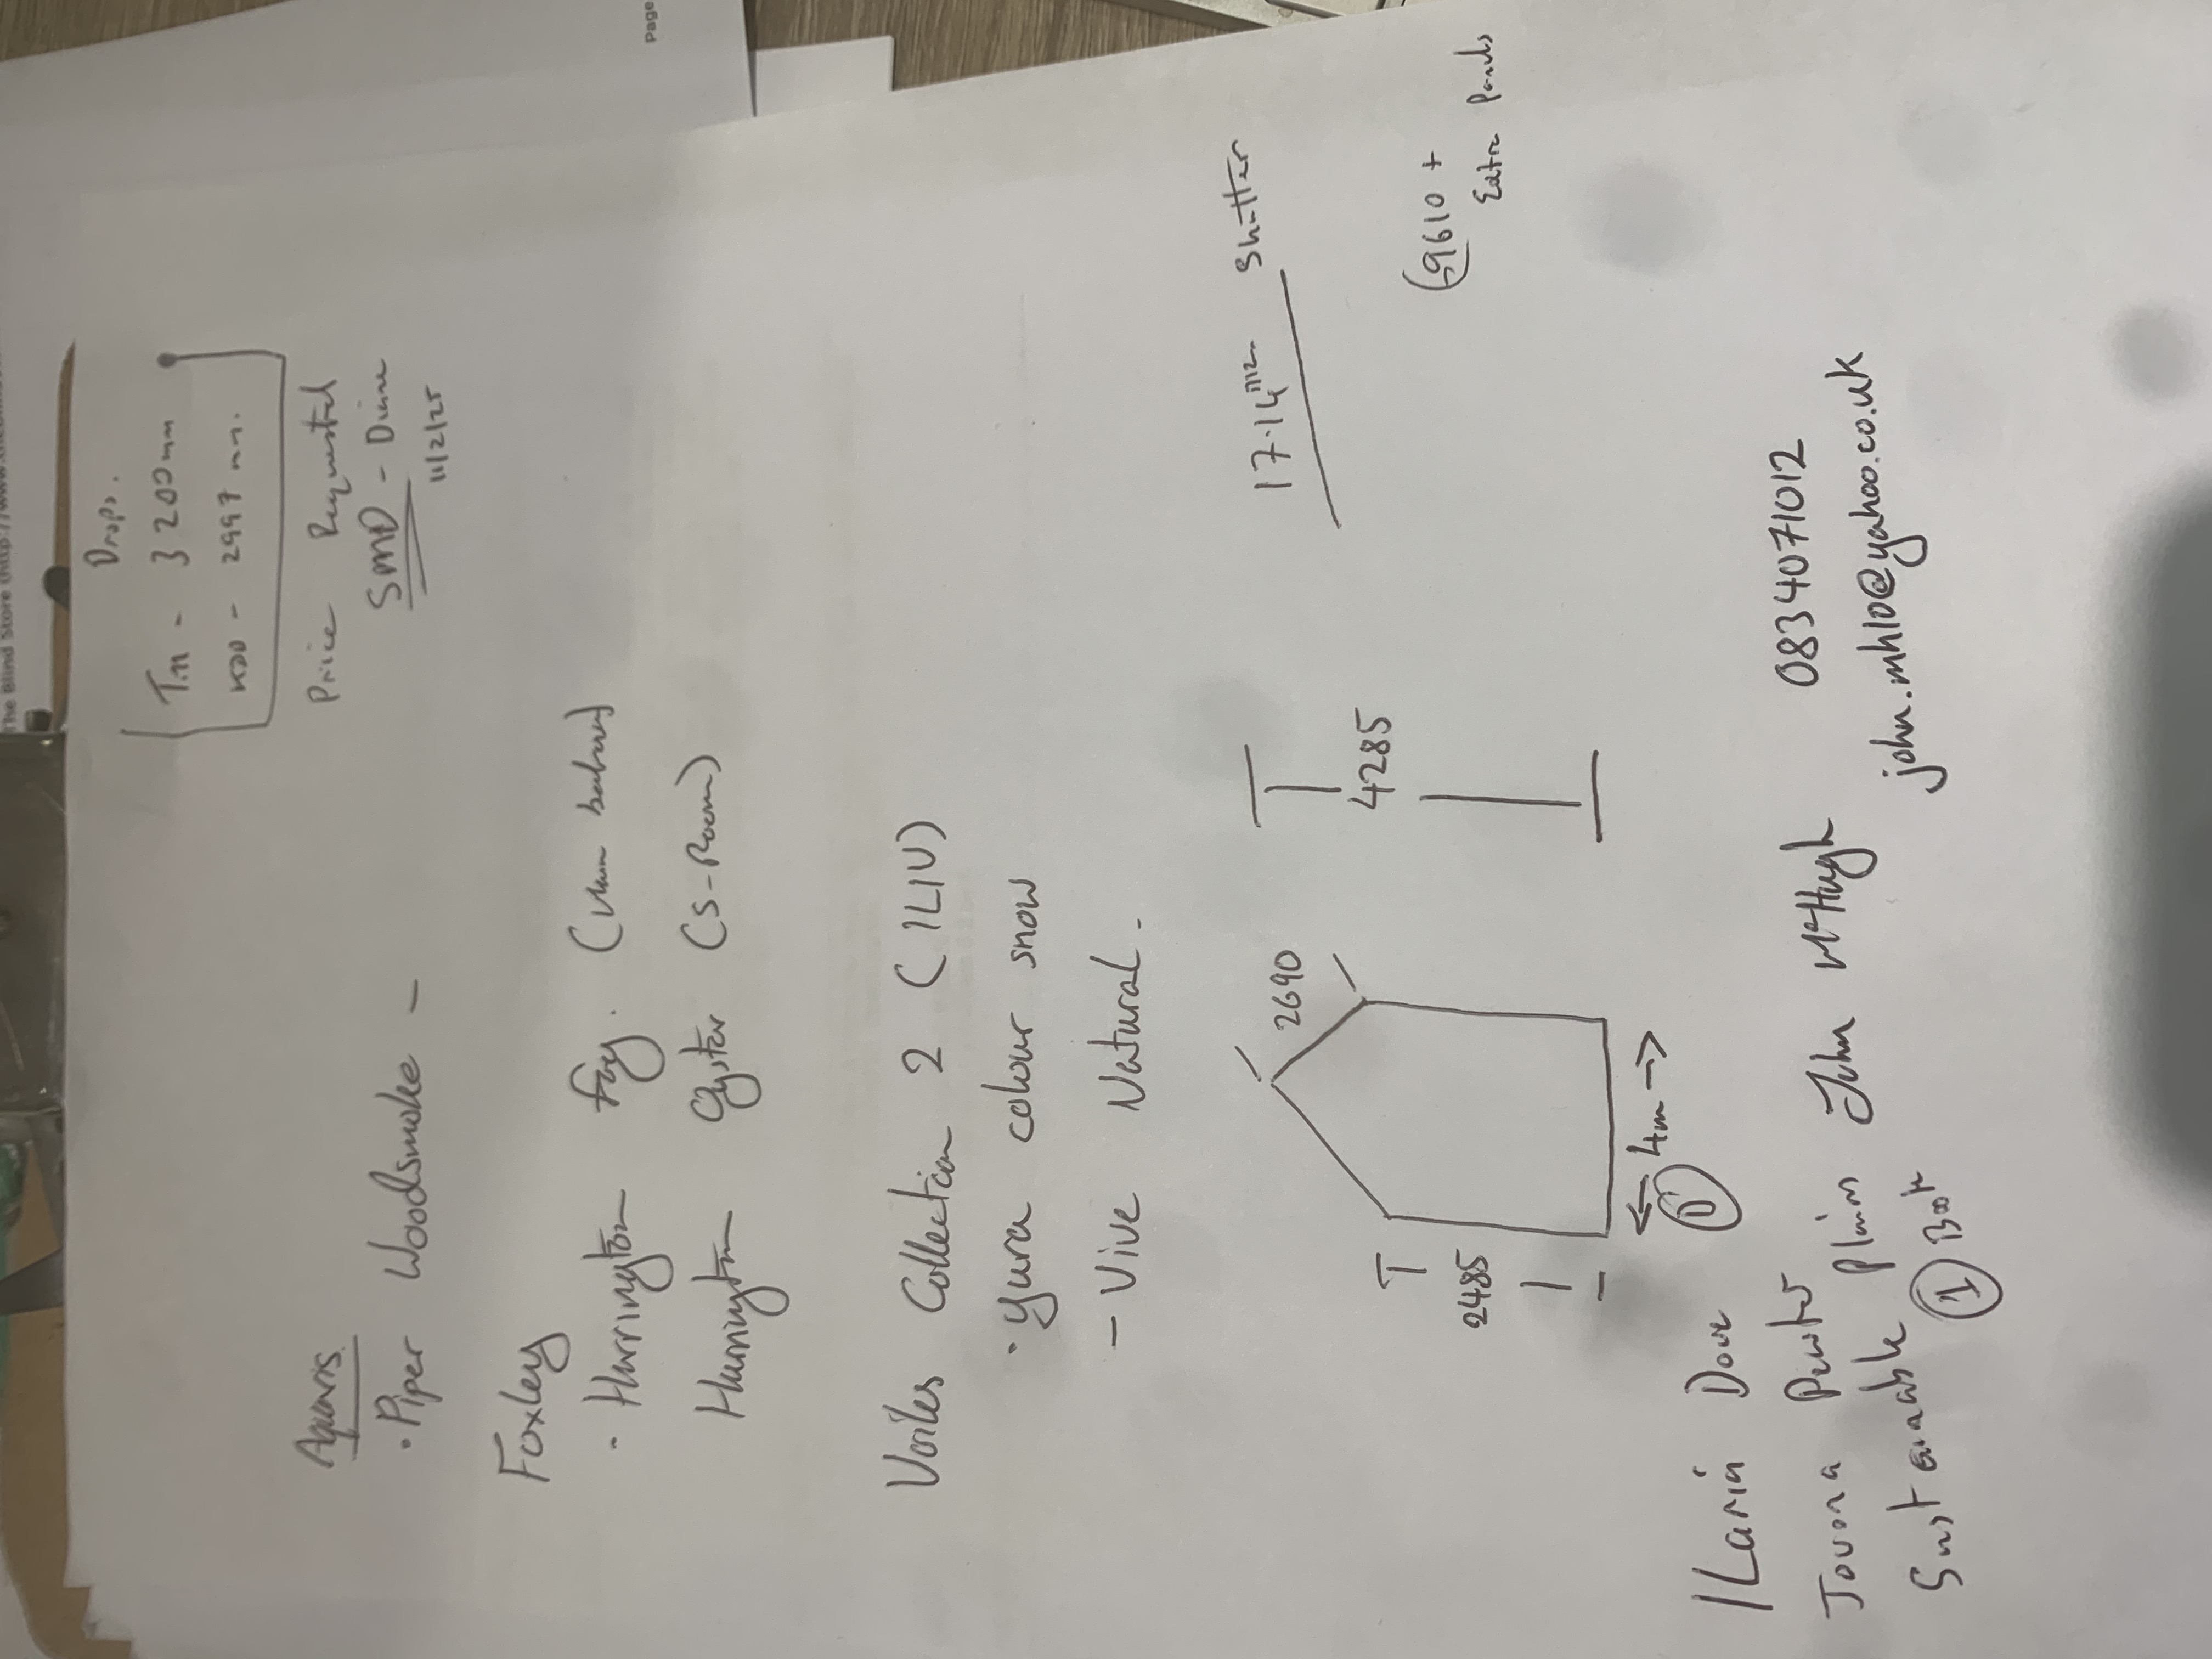 Page
The Blind Store (http://www.
Drops.
3200mm
2997 mm.
Price Requested
SMD - Diane
11/2/25
Aquarius
• Piper Woodsmoke -
Foxley
• Harrington Fog.
Harrington Oyster (S-Room)
Voiles Collection 2 (ILIV)
• Yura colour snow
- Vive Natural.
17.14 m2 Shutter
(9610 +
Extra Panels
2690
4285
2485
← 4m →
①
ILaria Dove
Jovona Pewter
plains
① Book
John McHugh 0834071012
john.mh10@yahoo.co.uk